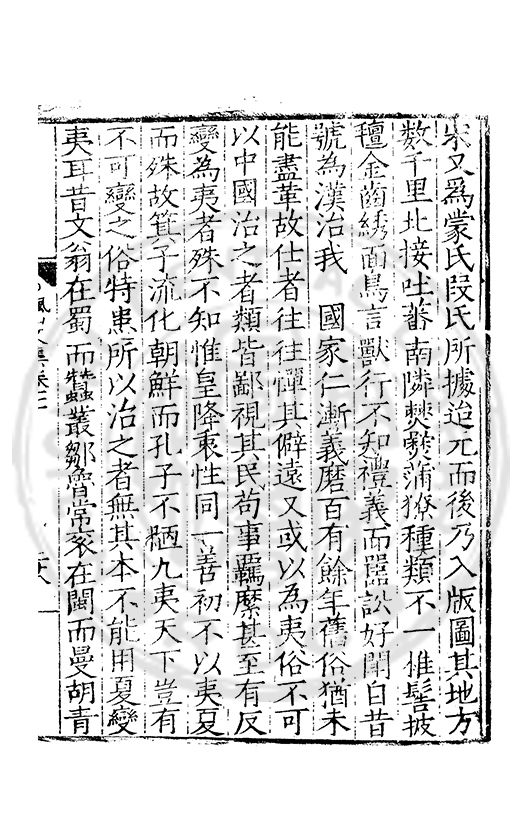 宋又為蒙氏段氏所據迨元而後乃入版圖其地方
数千里北接吐蕃南隣僰蒲獠種類不一椎髻披
氊金齒綉面鳥言獸行不知禮義而嚚訟好閗自昔
號為漢治我　國家仁漸義磨百有餘年舊俗猶未
能盡革故仕者往往憚其僻遠又或以為夷俗不可
以中國治之者類皆鄙視其民茍事羈縻甚至有反
變為夷者殊不知惟皇降衷性同一善初不以夷夏
而殊故箕子流化朝鮮而孔子不陋九夷天下豈有
不可變之俗特患所以治之者無其本不能用夏變
夷耳昔文翁在蜀而蠶叢鄒魯常袞在閩而曼胡青